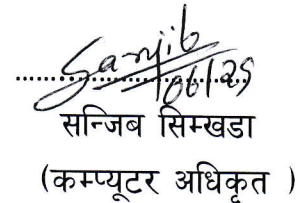 Sanjib
06/25
सन्जिब सिम्खडा
(कम्प्यूटर अधिकृत )